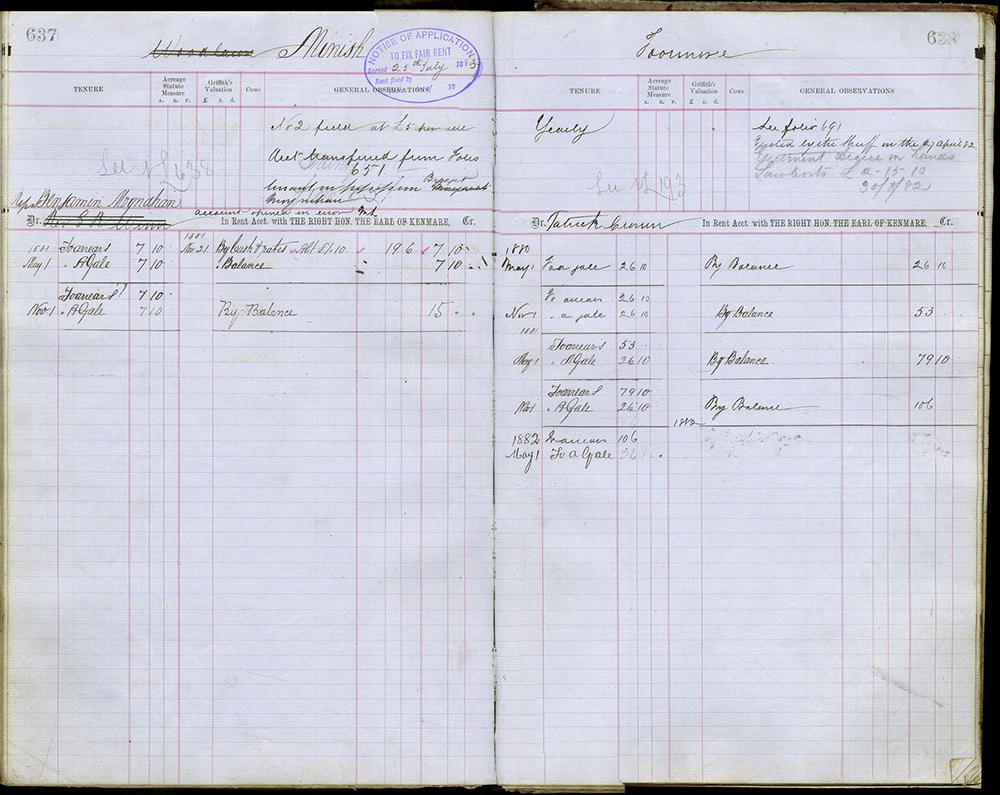 637
Woodlawn Minish
NOTICE OF APPLICATION
TO FIX FAIR RENT
Served 25th July 1883
Rent fixed by
18
TENURE
Acreage Statute Measure
A. R. P.
Griffith's Valuation
£ s. d.
Cows
GENERAL OBSERVATIONS
No 2 field at £5 per acre
Acct transferred from Folio
651
tenant in possession
Moynihan
See
638
Reps Benjamin Moynahan
account opened in error
Dr. In Rent Acct. with THE RIGHT HON. THE EARL OF KENMARE, Cr.
1881 To arrears 7 10 1881 Mar 21 By Cash & rates 19 6 7 10
May 1 " A Gale 7 10 " Balance 7 10
To arrears 7 10
Nov 1 " A Gale 7 10 By Balance 15
638
Toomore
TENURE
Acreage Statute Measure
A. R. P.
Griffith's Valuation
£ s. d.
Cows
GENERAL OBSERVATIONS
Yearly
See folio 691
Ejected by the Sheriff on the 27 April 82
Ejectment Decree in hands
£ 2-15-10
See 193
30/8/82
Dr. Patrick In Rent Acct. with THE RIGHT HON. THE EARL OF KENMARE, Cr.
1880
May 1 To a gale 26 10 By Balance 26 10
To arrears 26 10
Nov 1 " a gale 26 10 By Balance 53
1881
To arrears 53
May 1 " A Gale 26 10 By Balance 79 10
To arrears 79 10
Nov 1 " A Gale 26 10 By Balance 106
1882
1882 To arrears 106
May 1 To a Gale